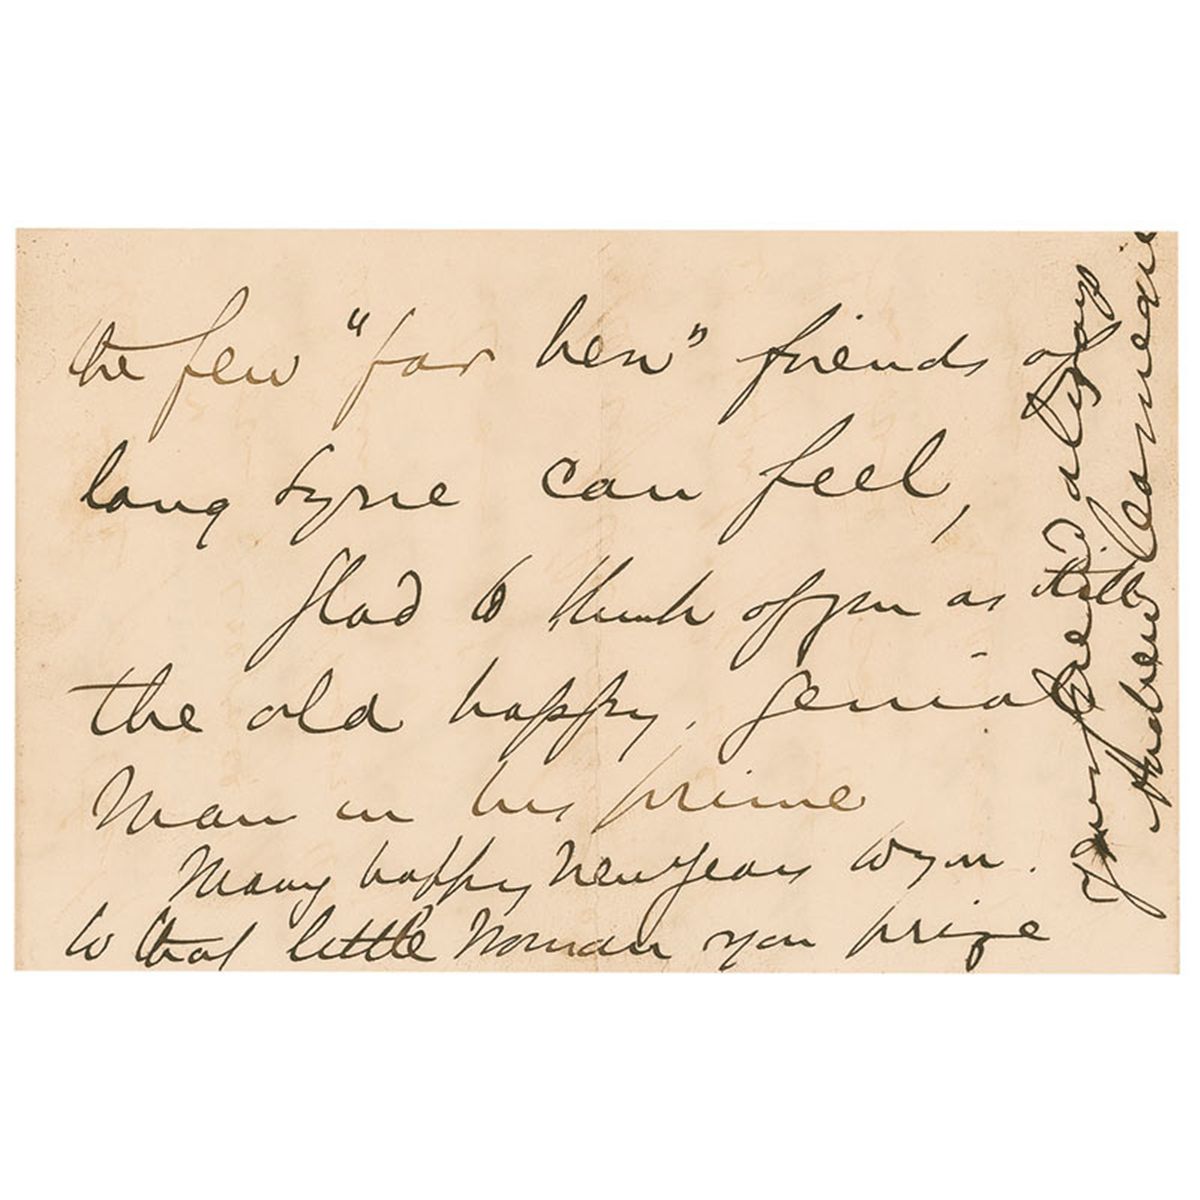 the few "far ben" friends of
lang syne can feel,
Glad to think of you as still
the old happy, genial
Man in his prime
Many happy New Years to you.
to that little Woman you prize
Your friend always
Andrew Carnegie